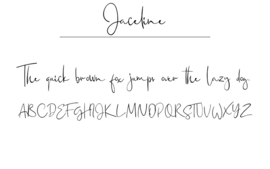 Jaceline
The quick brown fox jumps over the lazy dog.
ABCDEFGHIJKLMNOPQRSTUVWXYZ